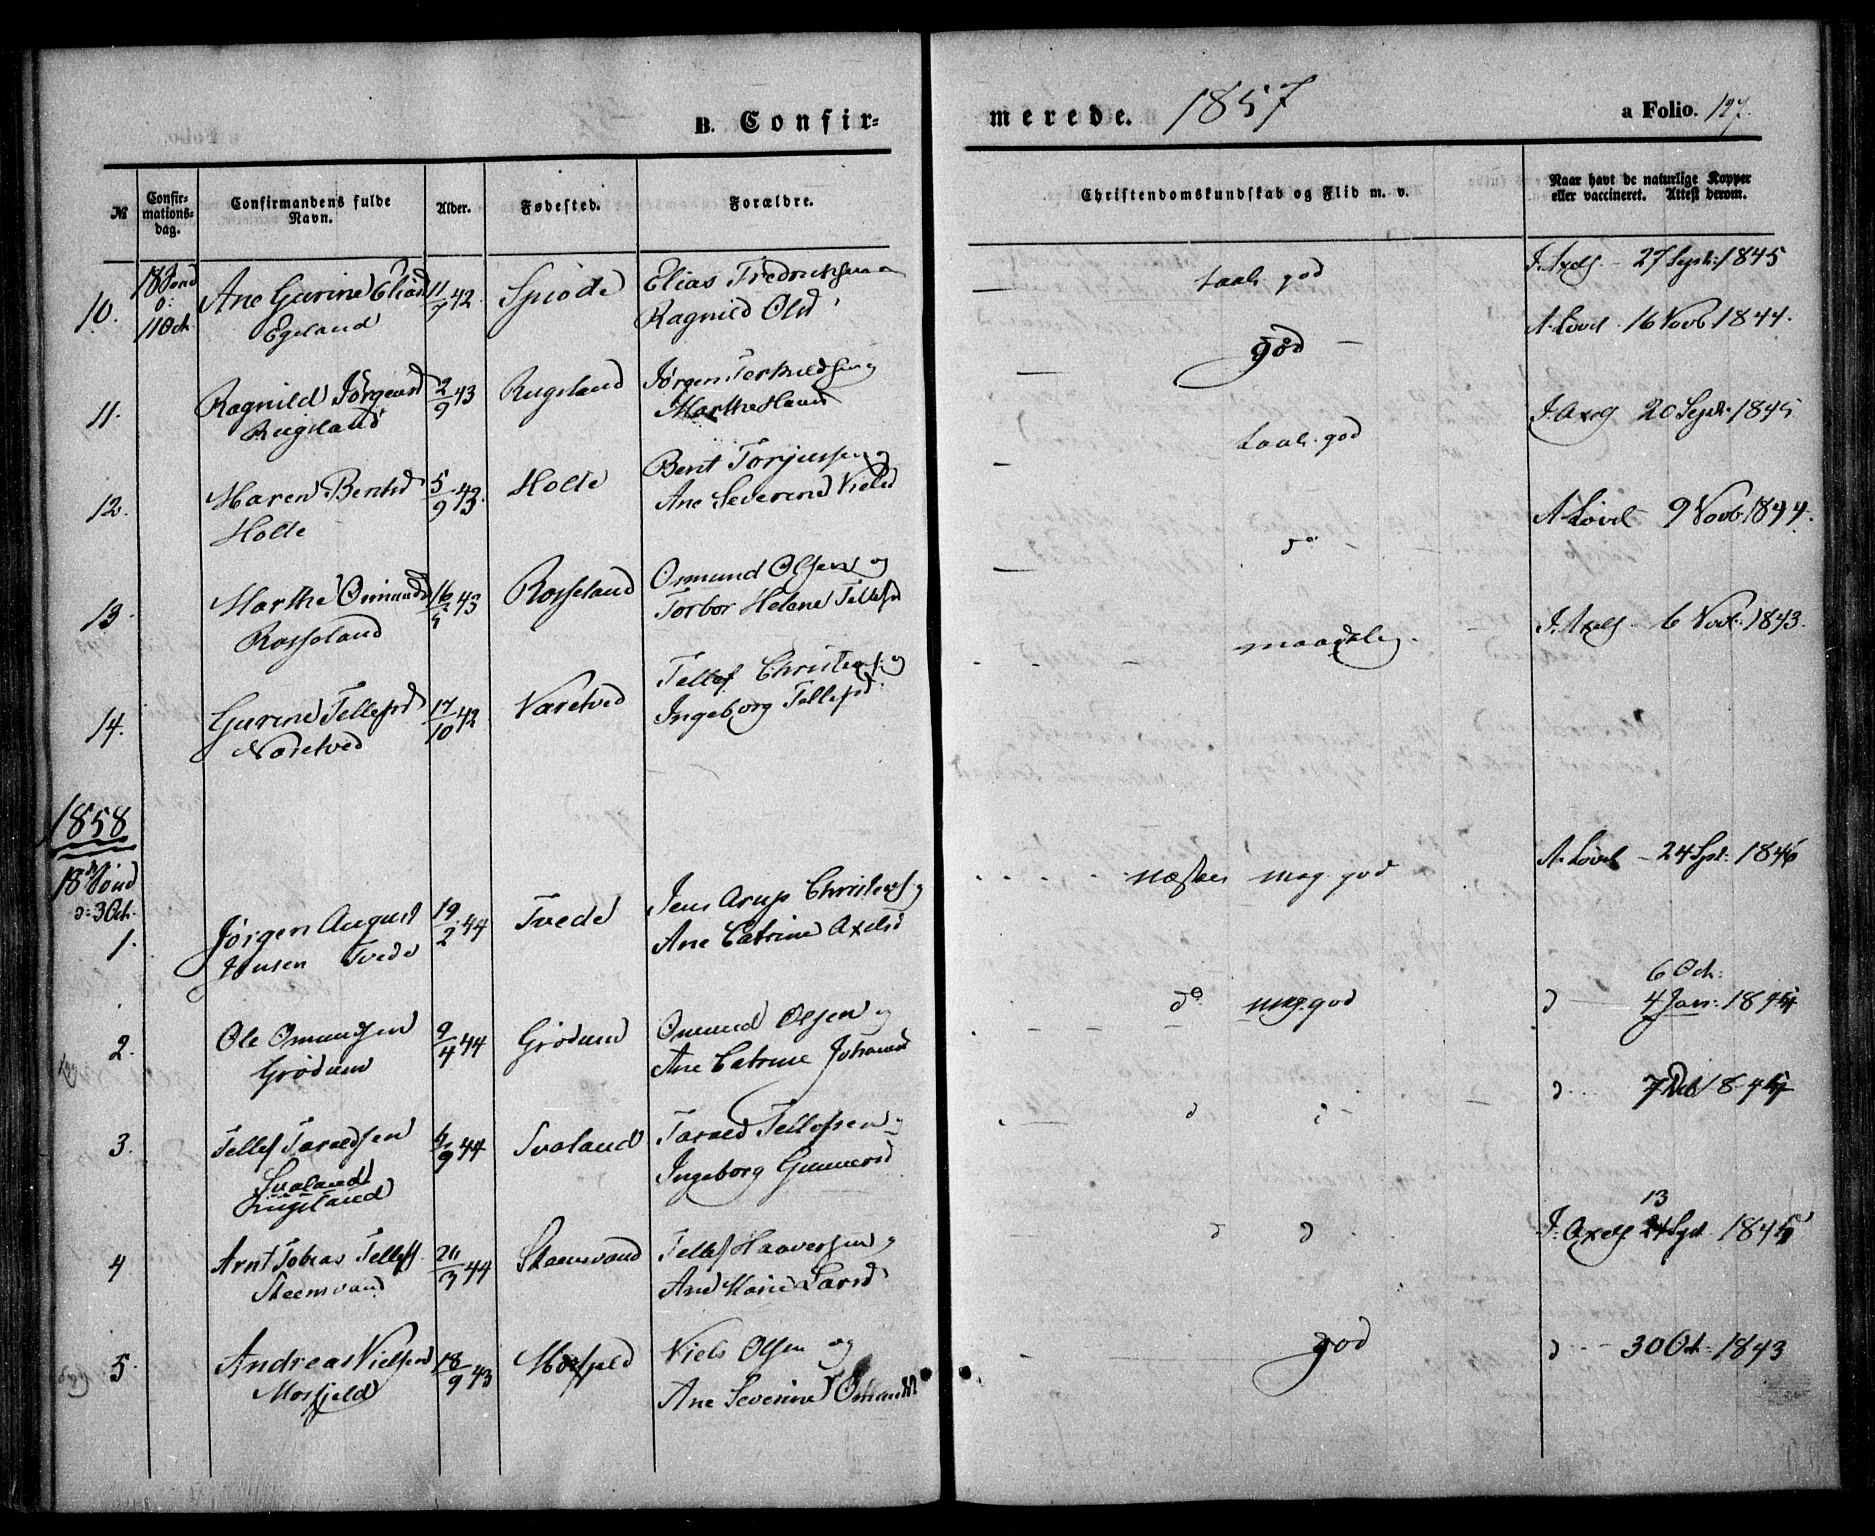 B. Confir-
merede. 1857
a Folio. 127.
№
Confir-
mations-
dag.
Confirmandens fulde
Navn.
Alder.
Fødested.
Forældre.
Christendomskundskab og Flid m. v.
Naar havt de naturlige Kopper
eller vaccineret. Attest derom.
10.
11 Oct.
Ane Gurine Eliasd
Egeland
11/7 42
Elias Fredriksen
Ragnild Olsd
taal. god
J. Axels. – 27 Sept: 1845
11.
Ragnild Jørgensd
Rugsland
2/9 43
Rugsland
Jørgen Terkildsen og
Marthe
god –
A. Lövd. 16 Novb 1844.
12.
Maren Bentsd
Holte
5/9 43.
Holte
Bent Torjussen og
Ane Severine Nielsd
taal. god
J. Axels 20 Sept. 1845
13.
Marthe Osmunds
Rosseland
16/5 43
Rosseland
Osmund Olsen og
Torbor Helene Tellefsd
do –
A Lövd. 9 Novb 1844.
14.
Gurine Tellefsd
Naretved
17/10 42
Naretved
Tellef Christens. og
Ingeborg Tellefsd.
maadelig.
J. Axels. 6 Novb. 1843.
1858
18de Sönd
o: 3 Oct.
1.
Jørgen August
Jensen Tvede
19/2 44
Tvede
Jens Arup Christens og
Ane Catrine Axelsd
næsten meg. god
A. Lövd. – 24 Spt: 1846
2.
Ole Omundsen
Grødum
9/4 44
Grødum
Omund Olsen og
Ane Catrine Johannesd
do meg. god
6 Oct:
d – 4 Jan: 1845
3.
Tellef Taraldsen
Svaland
Rugsland
6/9 44
Svaland
Tarald Tellefsen og
Ingeborg Gunnersd
d d –
d.. 7 Deb 1845
4
Arnt Tobias Tellefs.
Steensvand
20/3 44
Steensvand
Tellef Haaversen og
Ane Marie Larsd
d d.
13
J. Axels 24 Sept. 1845
5.
Andreas Nielsen
Mosfjeld
18/9 43
Mosfjeld
Niels Olsen og
Ane Severine Osmundsd
god
d – 30 Oct: 1843